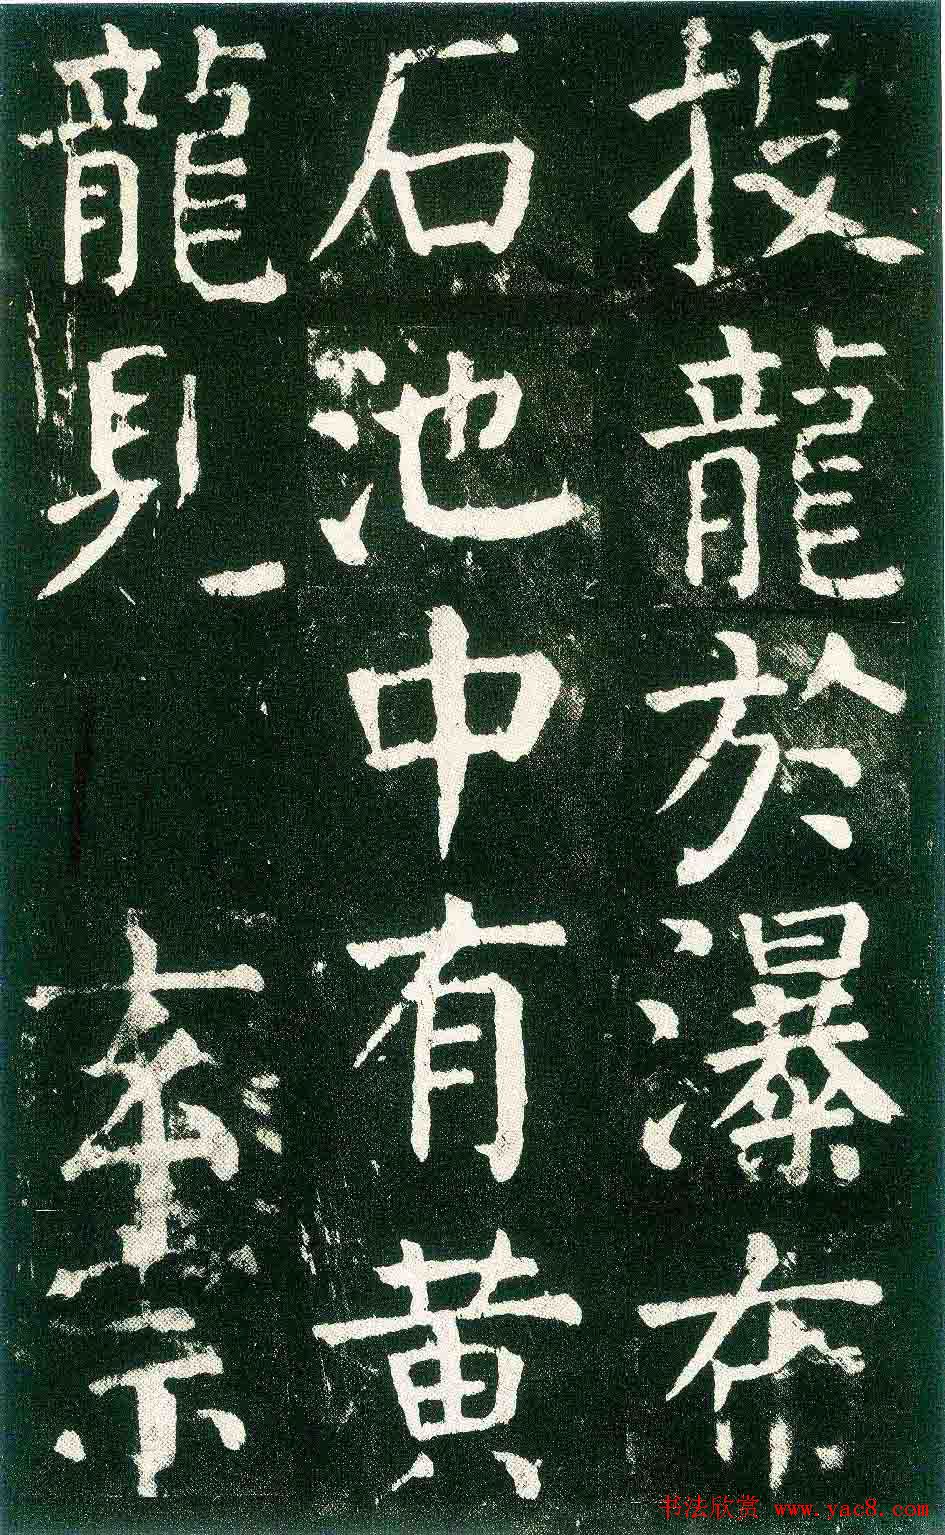 投龍於瀑布
石池中有黃
龍見玄宗
书法欣赏 www.yac8.com